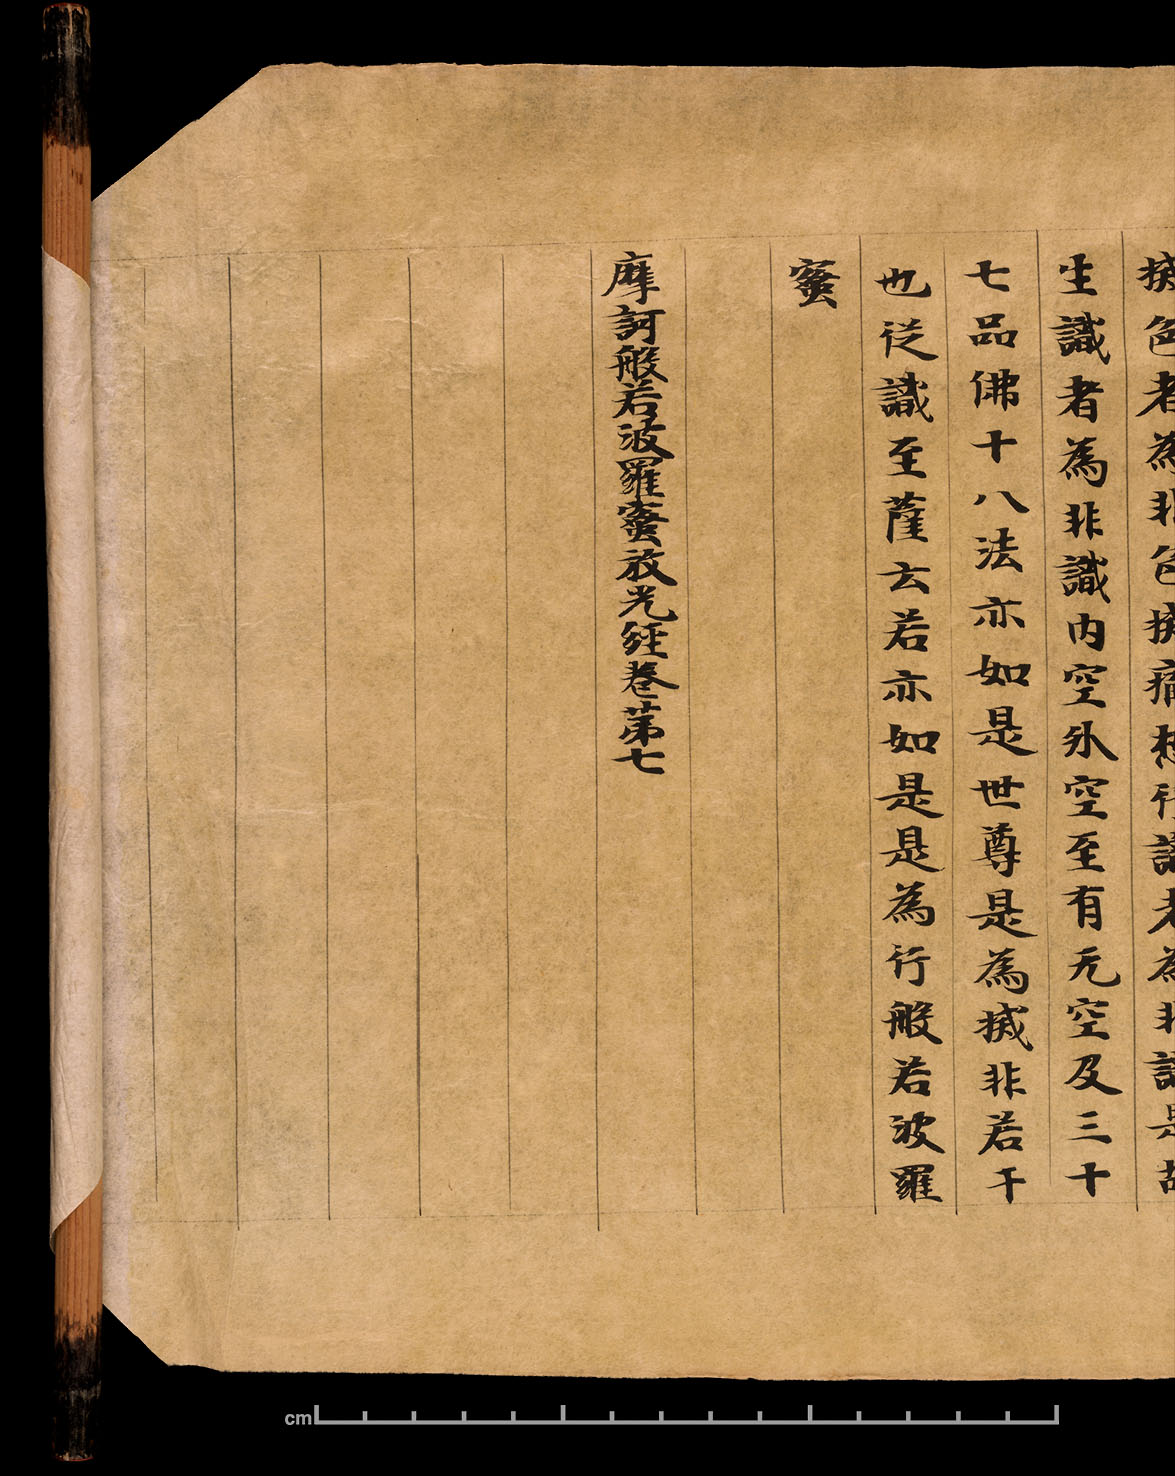 搣色者為非色搣痛想行識者為非識是故
生識者為非識内空外空至有无空及三十
七品佛十八法亦如是世尊是為搣非若干
也從識至薩云若亦如是是為行般若波羅
蜜
摩訶般若波羅蜜放光經卷第七
cm